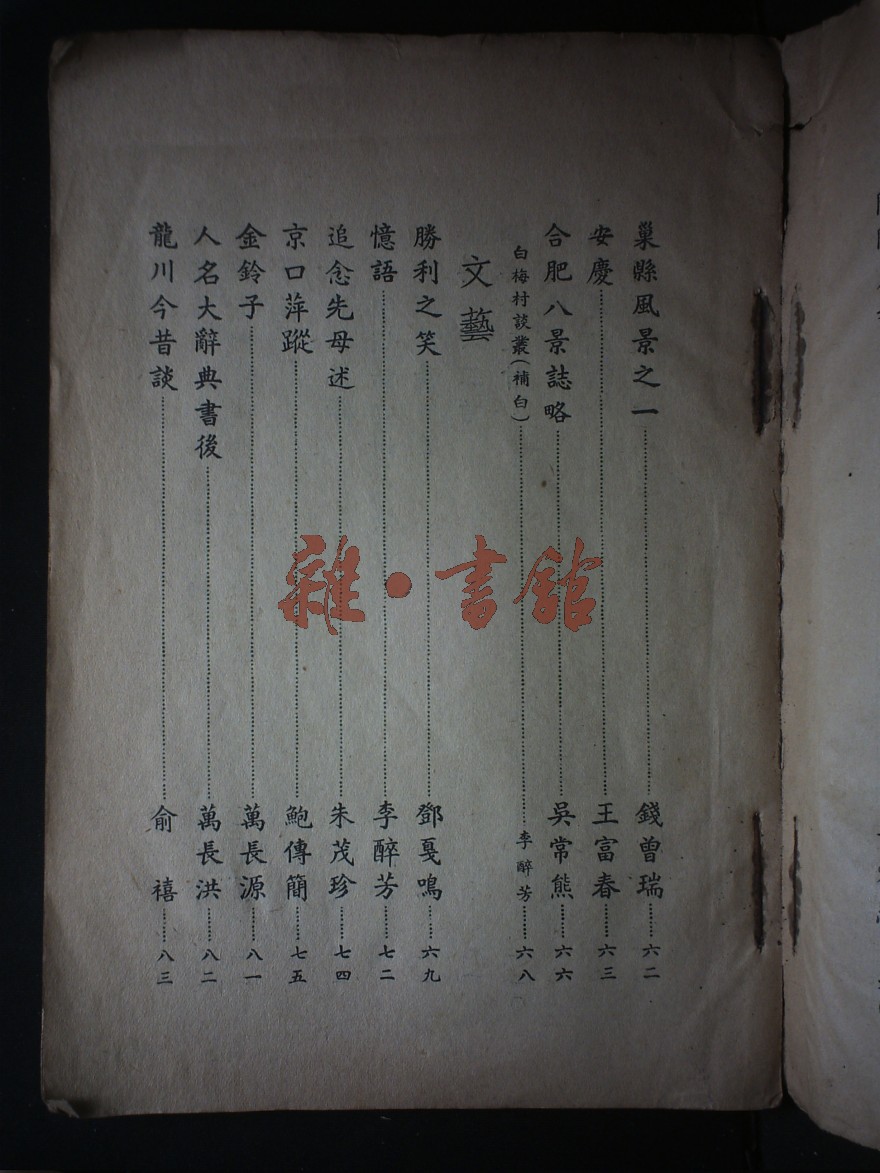 巢縣風景之一……錢曾瑞……六二
安慶……王富春……六三
合肥八景誌略……吳常熊……六六
白梅村談叢(補白)……李醉芳……六八
文藝
勝利之笑……鄧戛鳴……六九
憶語……李醉芳……七二
追念先母述……朱茂珍……七四
京口萍蹤……鮑傳簡……七五
金鈴子……萬長源……八一
人名大辭典書後……萬長洪……八二
龍川今昔談……俞禧……八三
雜·書館